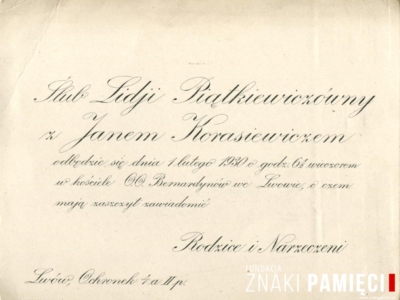 Ślub Lidji Piątkiewiczówny
z Janem Korasiewiczem
odbędzie się dnia 1 lutego 1930 o godz. 6½ wieczorem
w kościele OO. Bernardynów we Lwowie, o czem
mają zaszczyt zawiadomić
Rodzice i Narzeczeni
Lwów, Ochronek a II p.
FUNDACJA
ZNAKI PAMIĘCI